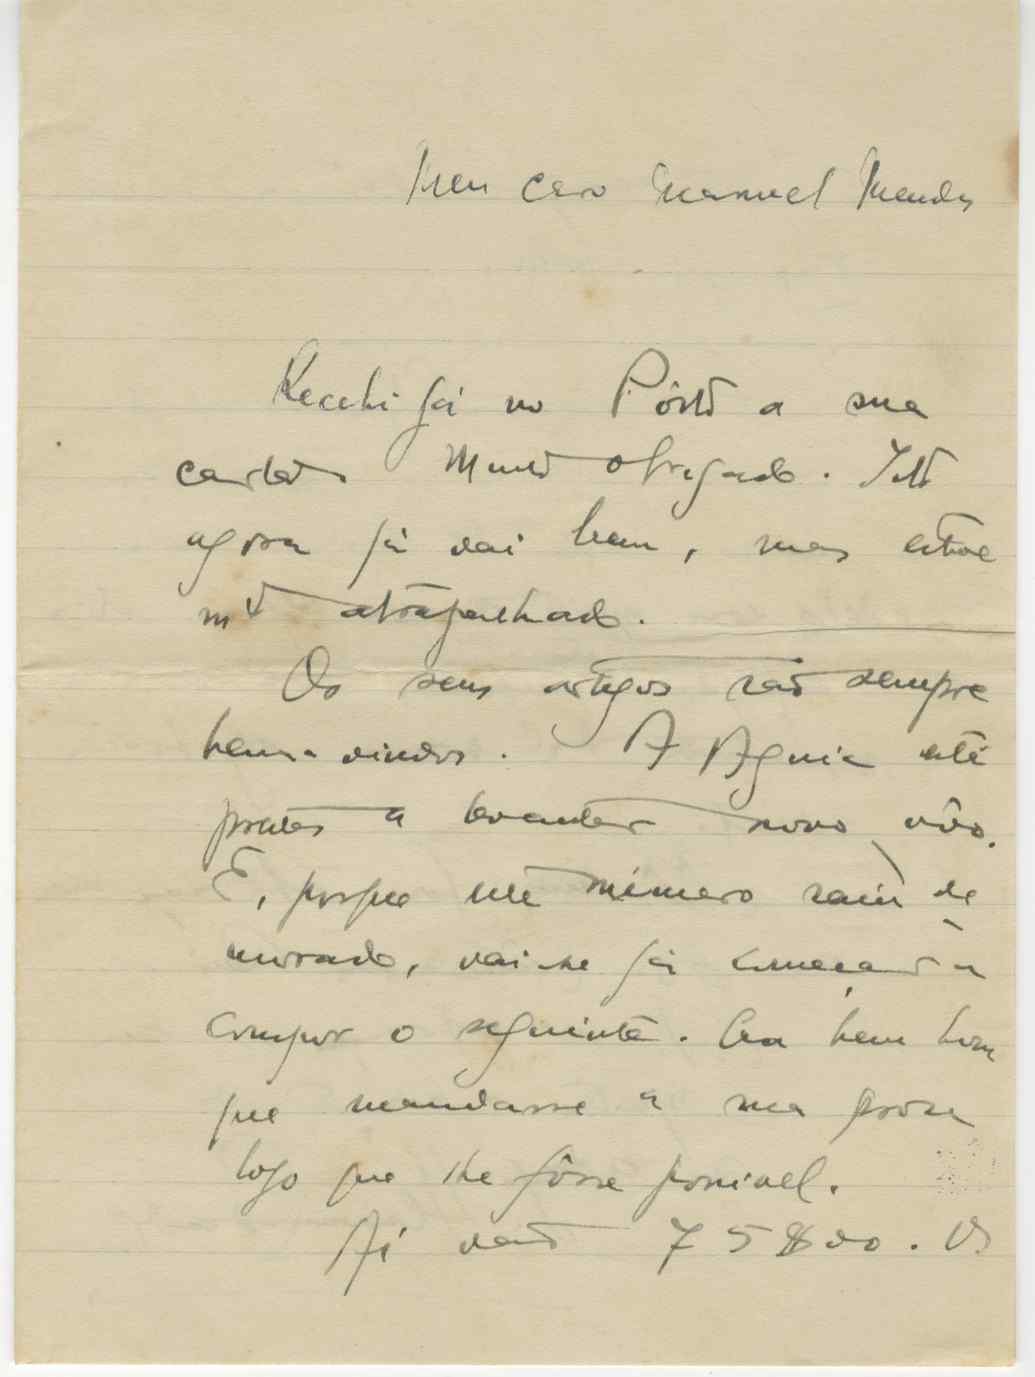 Meu caro Manuel Mendes
Recebi já no Pôrto a sua
carta. Muito obrigado. Isto
agora já vai bem, mas estive
mto atrapalhado.
Os seus artigos são sempre
bem-vindos. A Aguia está
prestes a levantar novo vôo.
E, porque este número saíu de
morado, vai-se já começar a
compor o seguinte. Era bem bom
que mandasse a sua prosa
logo que lhe fôsse possivel.
Aí vão 75$00. Os